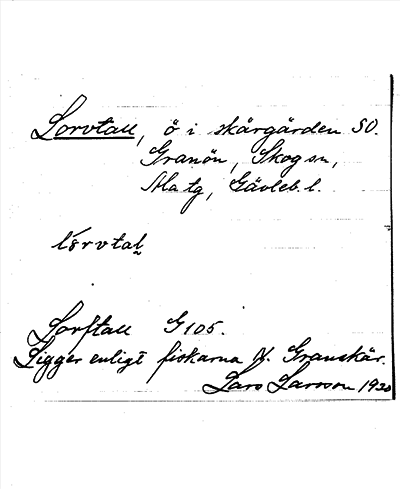 Lorvtall, ö i skärgården SO.
Granön, Skog sn,
Ala tg, Gävleb. l.
lörvtal
Lorftall G 105.
Ligger enligt fiskarna N. Granskär.
Lars Larsson 1920